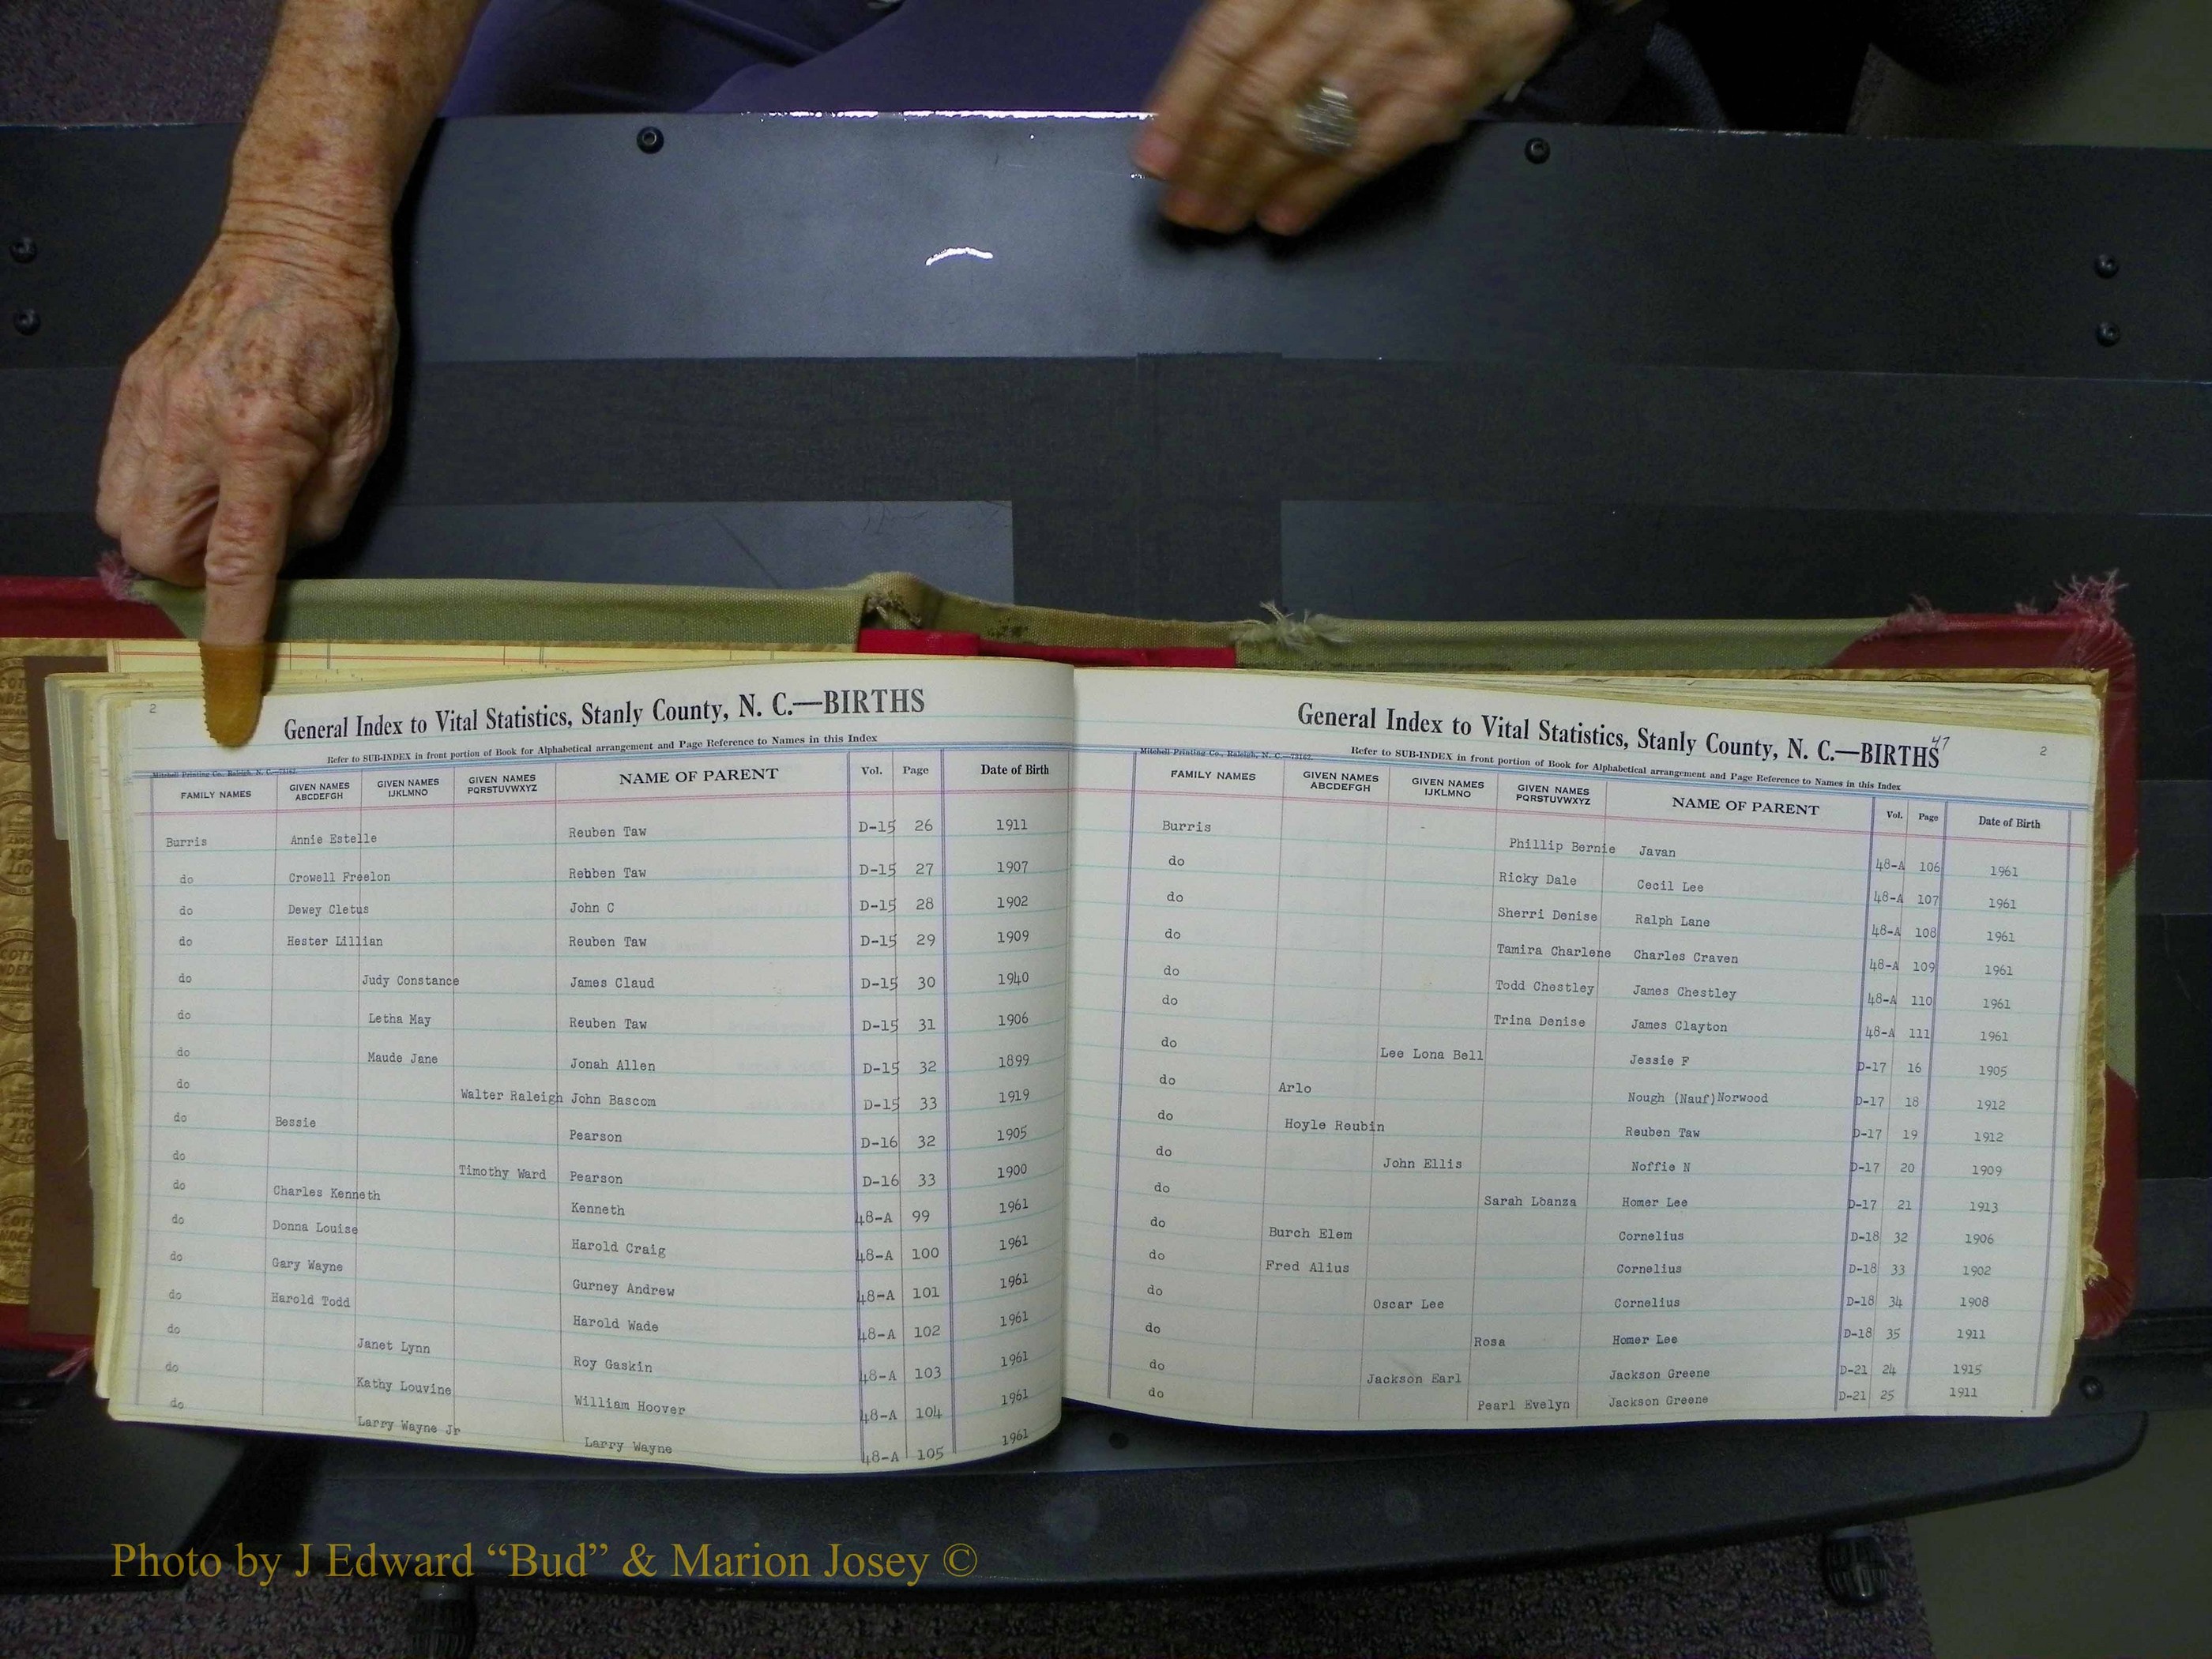 2
General Index to Vital Statistics, Stanly County, N. C.—BIRTHS
Refer to SUB-INDEX in front portion of Book for Alphabetical arrangement and Page Reference to Names in this Index
Mitchell Printing Co., Raleigh, N. C.—75162
FAMILY NAMES GIVEN NAMES ABCDEFGH GIVEN NAMES IJKLMNO GIVEN NAMES PQRSTUVWXYZ NAME OF PARENT Vol. Page Date of Birth
Burris Annie Estelle Reuben Taw D-15 26 1911
do Crowell Freelon Rebben Taw D-15 27 1907
do Dewey Cletus John C D-15 28 1902
do Hester Lillian Reuben Taw D-15 29 1909
do Judy Constance James Claud D-15 30 1940
do Letha May Reuben Taw D-15 31 1906
do Maude Jane Jonah Allen D-15 32 1899
do Walter Raleigh John Bascom D-15 33 1919
do Bessie Pearson D-16 32 1905
do Timothy Ward Pearson D-16 33 1900
do Charles Kenneth Kenneth 48-A 99 1961
do Donna Louise Harold Craig 48-A 100 1961
do Gary Wayne Gurney Andrew 48-A 101 1961
do Harold Todd Harold Wade 48-A 102 1961
do Janet Lynn Roy Gaskin 48-A 103 1961
do Kathy Louvine William Hoover 48-A 104 1961
do Larry Wayne Jr Larry Wayne 48-A 105 1961
General Index to Vital Statistics, Stanly County, N. C.—BIRTHS
47
2
Mitchell Printing Co., Raleigh, N. C.—75162
Refer to SUB-INDEX in front portion of Book for Alphabetical arrangement and Page Reference to Names in this Index
FAMILY NAMES GIVEN NAMES ABCDEFGH GIVEN NAMES IJKLMNO GIVEN NAMES PQRSTUVWXYZ NAME OF PARENT Vol. Page Date of Birth
Burris Phillip Bernie Javan 48-A 106 1961
do Ricky Dale Cecil Lee 48-A 107 1961
do Sherri Denise Ralph Lane 48-A 108 1961
do Tamira Charlene Charles Craven 48-A 109 1961
do Todd Chestley James Chestley 48-A 110 1961
do Trina Denise James Clayton 48-A 111 1961
do Lee Lona Bell Jessie F D-17 16 1905
do Arlo Nough (Nauf)Norwood D-17 18 1912
do Hoyle Reubin Reuben Taw D-17 19 1912
do John Ellis Noffie N D-17 20 1909
do Sarah Lbanza Homer Lee D-17 21 1913
do Burch Elem Cornelius D-18 32 1906
do Fred Alius Cornelius D-18 33 1902
do Oscar Lee Cornelius D-18 34 1908
do Rosa Homer Lee D-18 35 1911
do Jackson Earl Jackson Greene D-21 24 1915
do Pearl Evelyn Jackson Greene D-21 25 1911
Photo by J Edward “Bud” & Marion Josey ©